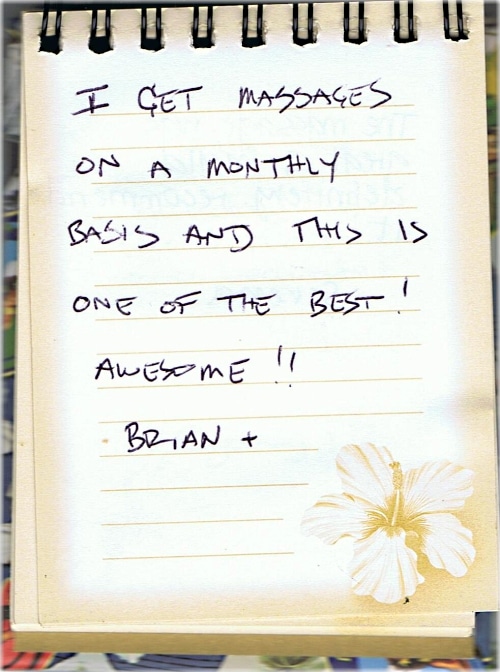 I GET MASSAGES
ON A MONTHLY
BASIS AND THIS IS
ONE OF THE BEST!
AWESOME!!
BRIAN +